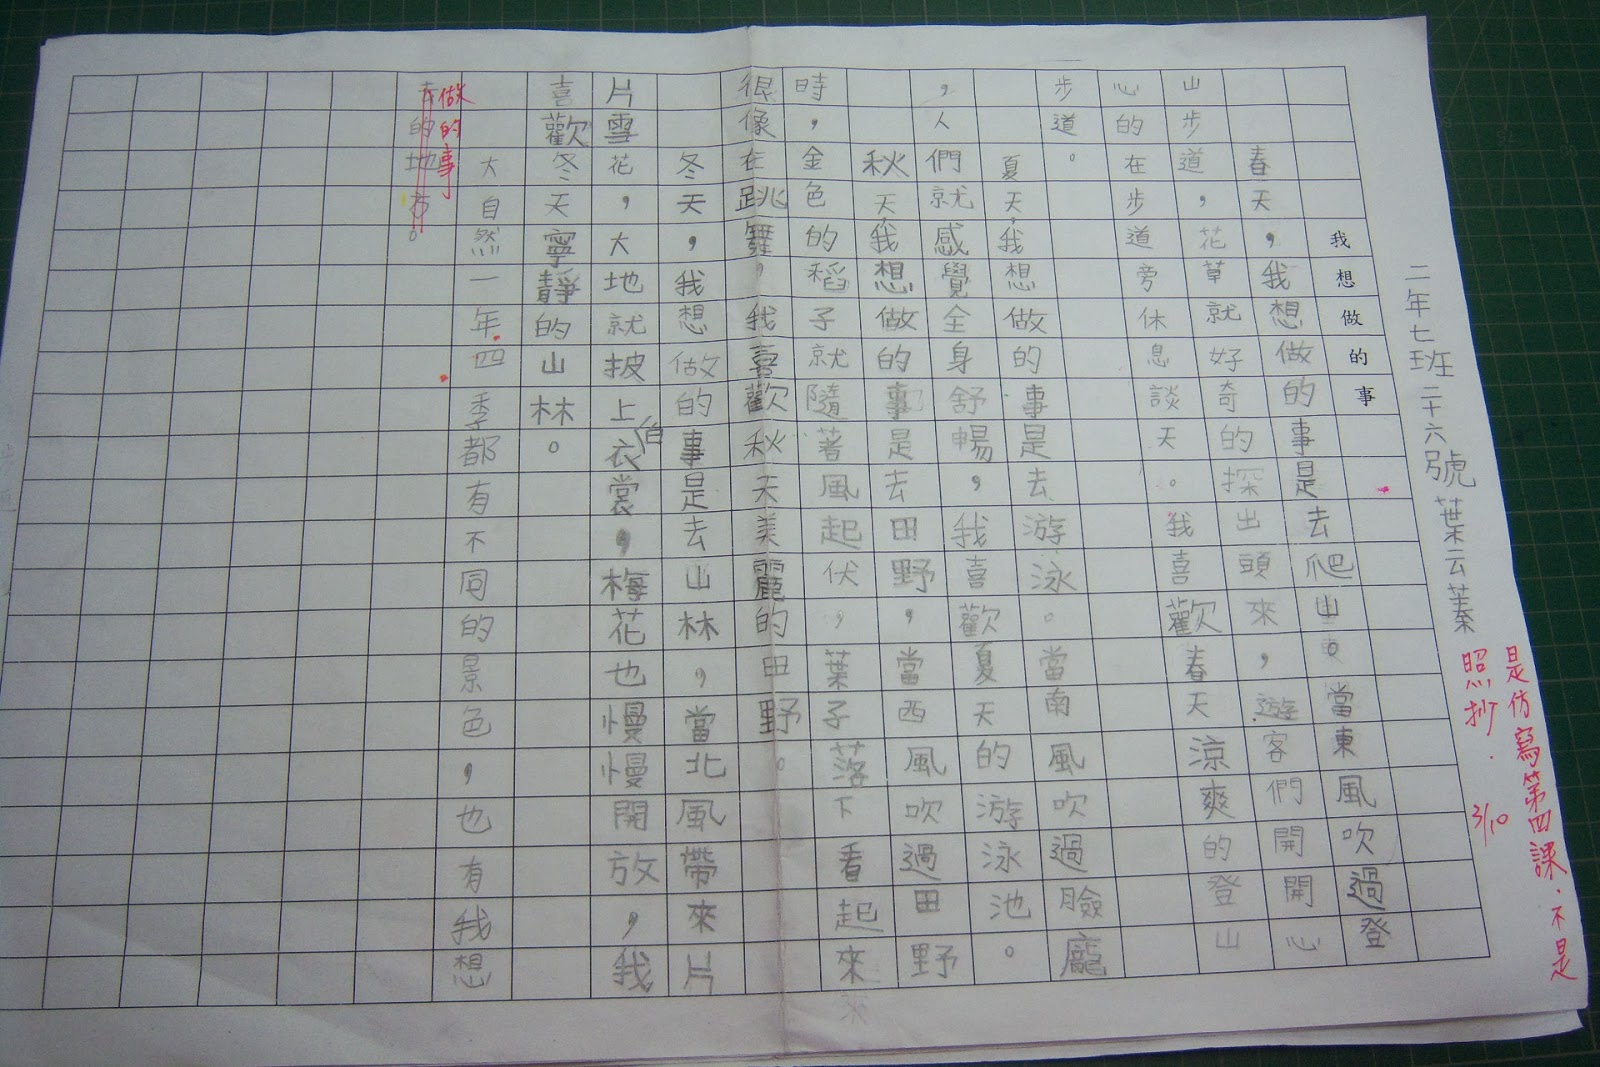 二年七班 二十六號 葉云蓁
是仿寫第四課.不是
照抄. 3/10
我想做的事
春天，我想做的事是去爬山，當東風吹過登
山步道，花草就好奇的探出頭來，遊客們開開心
心的在步道旁休息談天。我喜歡春天涼爽的登山
步道。
夏天，我想做的事是去游泳。當南風吹過臉龐
，人們就感覺全身舒暢，我喜歡夏天的游泳池。
秋天，我想做的事是去田野，當西風吹過田野
時，金色的稻子就隨著風起伏，葉子落下看起來
很像在跳舞，我喜歡秋天美麗的田野。
冬天，我想做的事是去山林，當北風帶來片
片雪花，大地就披上白衣裳，梅花也慢慢開放，我
喜歡冬天寧靜的山林。
大自然一年四季都有不同的景色，也有我想
做的事
去的地方。